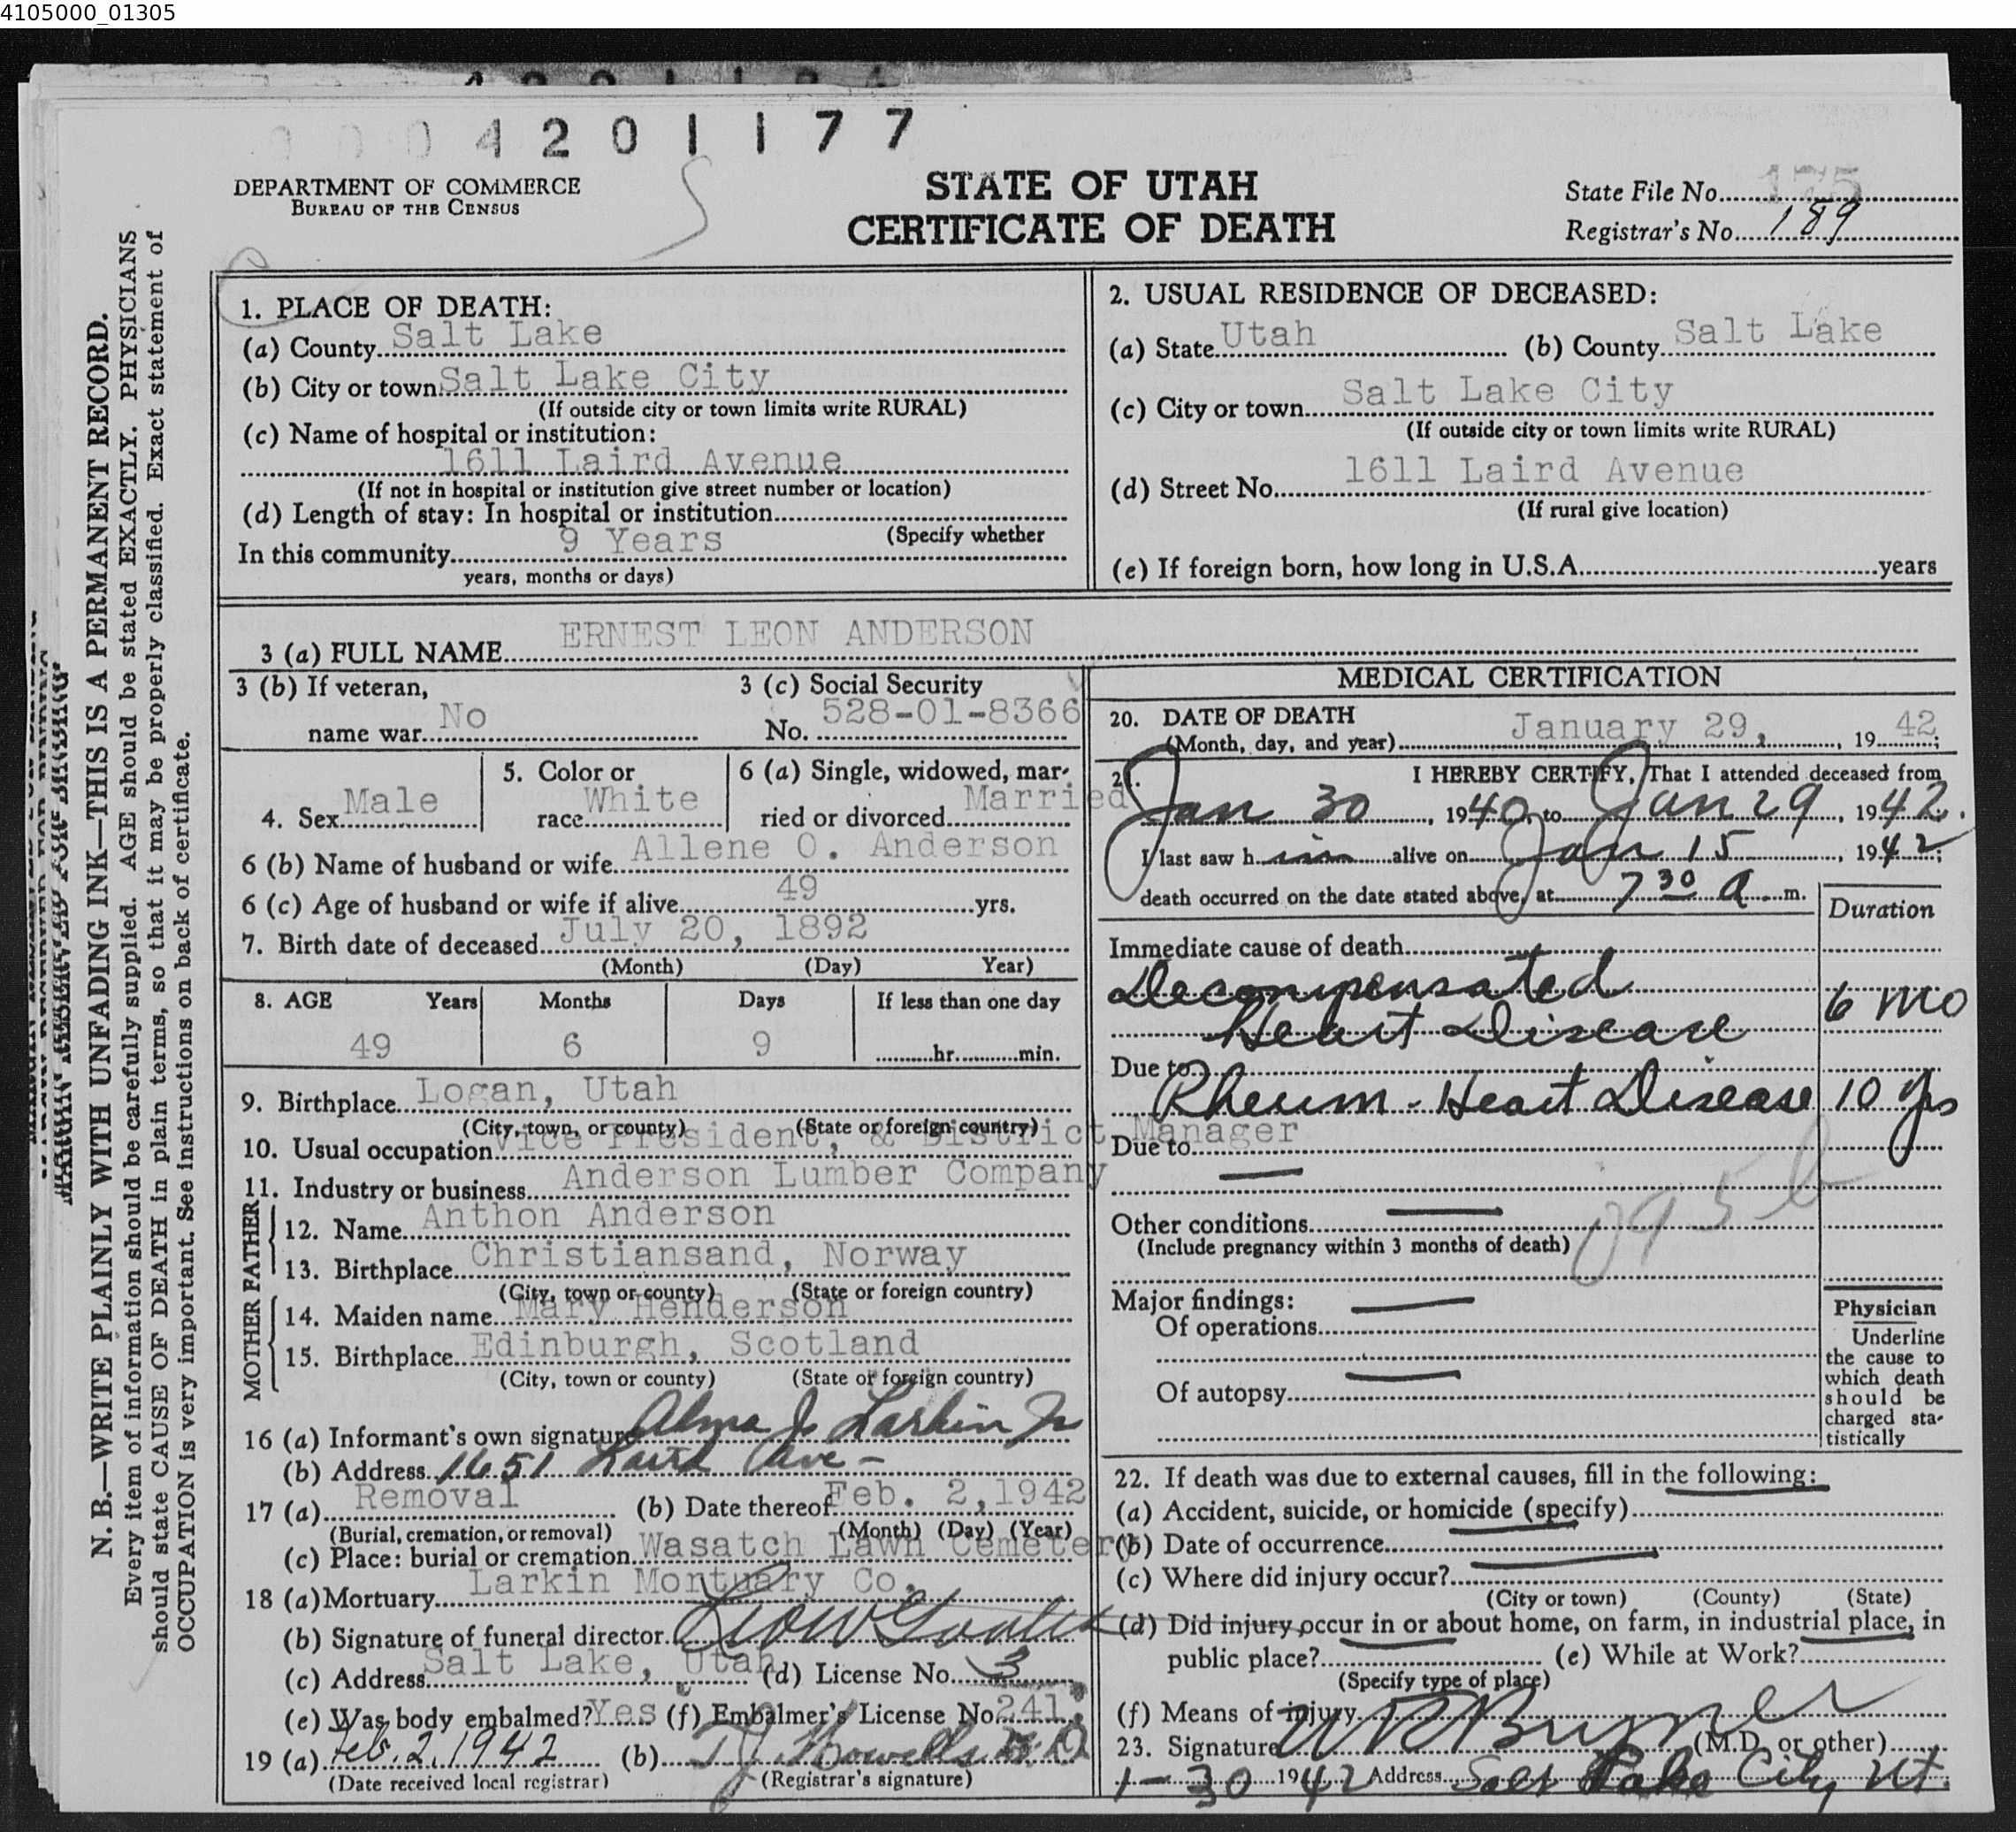 4105000_01305
4201177
DEPARTMENT OF COMMERCE
BUREAU OF THE CENSUS
STATE OF UTAH
CERTIFICATE OF DEATH
State File No. 175
Registrar's No. 189
N. B.—WRITE PLAINLY WITH UNFADING INK—THIS IS A PERMANENT RECORD.
Every item of information should be carefully supplied. AGE should be stated EXACTLY. PHYSICIANS
should state CAUSE OF DEATH in plain terms, so that it may be properly classified. Exact statement of
OCCUPATION is very important. See instructions on back of certificate.
1. PLACE OF DEATH:
(a) County Salt Lake
(b) City or town Salt Lake City
(If outside city or town limits write RURAL)
(c) Name of hospital or institution:
1611 Laird Avenue
(If not in hospital or institution give street number or location)
(d) Length of stay: In hospital or institution
(Specify whether
In this community 9 Years
years, months or days)
2. USUAL RESIDENCE OF DECEASED:
(a) State Utah (b) County Salt Lake
(c) City or town Salt Lake City
(If outside city or town limits write RURAL)
(d) Street No. 1611 Laird Avenue
(If rural give location)
(e) If foreign born, how long in U.S.A. years
3 (a) FULL NAME ERNEST LEON ANDERSON
3 (b) If veteran,
name war No
3 (c) Social Security
No. 528-01-8366
4. Sex Male
5. Color or
race White
6 (a) Single, widowed, mar-
ried or divorced Married
6 (b) Name of husband or wife Allene O. Anderson
6 (c) Age of husband or wife if alive 49 yrs.
7. Birth date of deceased July 20, 1892
(Month) (Day) Year)
8. AGE Years Months Days If less than one day
49 6 9 hr. min.
9. Birthplace Logan, Utah
(City, town, or county) (State or foreign country)
10. Usual occupation Vice President, & District Manager
11. Industry or business Anderson Lumber Company
FATHER
12. Name Anthon Anderson
13. Birthplace Christiansand, Norway
(City, town or county) (State or foreign country)
MOTHER
14. Maiden name Mary Henderson
15. Birthplace Edinburgh, Scotland
(City, town or county) (State or foreign country)
16 (a) Informant's own signature Alma J Larkin Jr
(b) Address 1651 Laird Ave -
17 (a) Removal (b) Date thereof Feb. 2, 1942
(Burial, cremation, or removal) (Month) (Day) (Year)
(c) Place: burial or cremation Wasatch Lawn Cemetery
18 (a) Mortuary Larkin Mortuary Co.
(b) Signature of funeral director
(c) Address Salt Lake, Utah (d) License No. 3
(e) Was body embalmed? Yes (f) Embalmer's License No. 241
19 (a) Feb. 2, 1942 (b) T J Howells M.D.
(Date received local registrar) (Registrar's signature)
MEDICAL CERTIFICATION
20. DATE OF DEATH
(Month, day, and year) January 29, 1942;
21. I HEREBY CERTIFY, That I attended deceased from
Jan 30, 1940, to Jan 29, 1942.
I last saw him alive on Jan 15, 1942;
death occurred on the date stated above, at 7 30 a m.
Duration
Immediate cause of death
Decompensated
Heart Disease 6 mo
Due to
Rheum - Heart Disease 10 yrs
Due to
Other conditions
(Include pregnancy within 3 months of death)
095b
Major findings:
Of operations
Of autopsy
Physician
Underline
the cause to
which death
should be
charged sta-
tistically
22. If death was due to external causes, fill in the following:
(a) Accident, suicide, or homicide (specify)
(b) Date of occurrence
(c) Where did injury occur?
(City or town) (County) (State)
(d) Did injury occur in or about home, on farm, in industrial place, in
public place? (e) While at Work?
(Specify type of place)
(f) Means of injury
23. Signature (M.D. or other)
1-30 1942 Address Salt Lake City Ut.